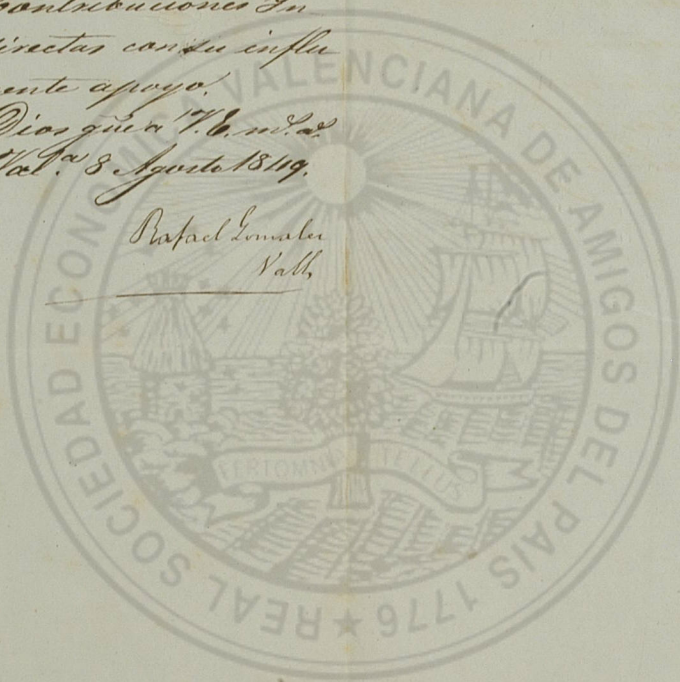 contribuciones In-
directas con su influ
ente apoyo.
Dios gue a V.E. m.s a.s
Val.a 8 Agosto 1849.
Rafael Gonzalez
Valls
REAL SOCIEDAD ECONOMICA VALENCIANA DE AMIGOS DEL PAIS 1776 ★
FERT OMNIA TELLUS